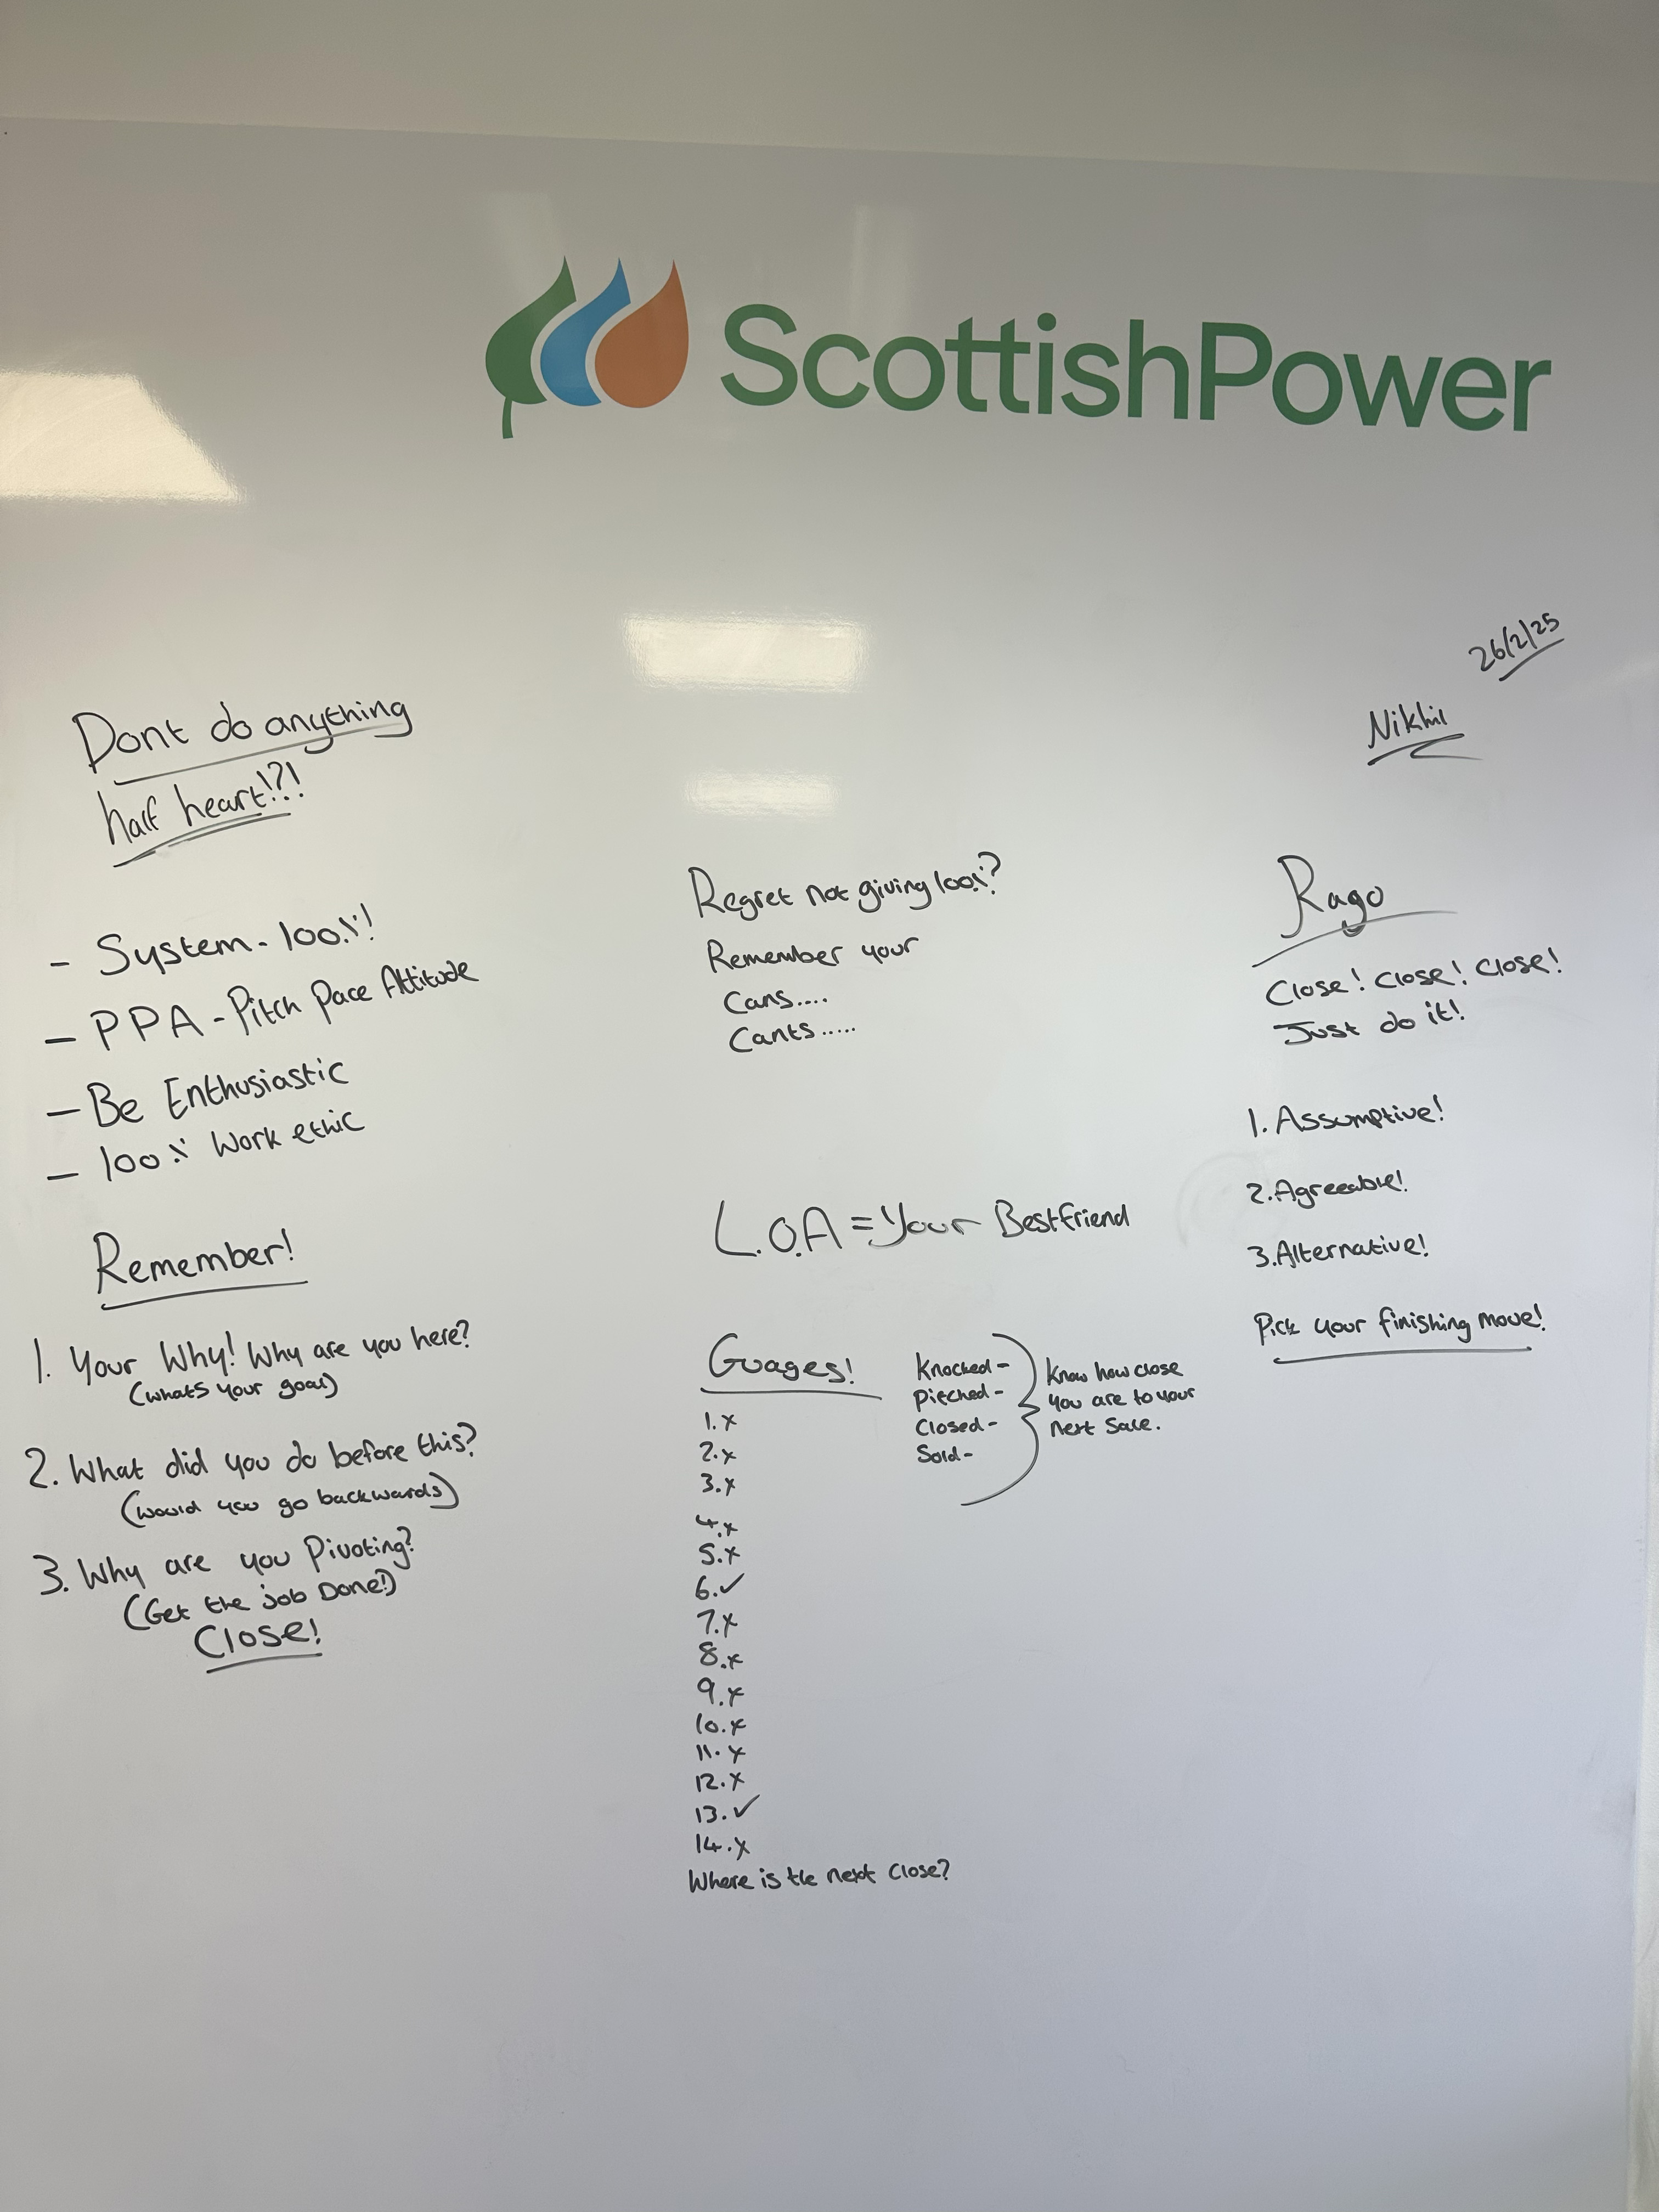 ScottishPower
26/2/25
Nikhil
Dont do anything
half heart!?!
- System - 100%!
- PPA - Pitch Pace Attitude
- Be Enthusiastic
- 100% Work ethic
Remember!
1. Your Why! Why are you here?
(whats your goal)
2. What did you do before this?
(would you go backwards)
3. Why are you Pivoting?
(Get the job Done!)
Close!
Regret not giving 100%?
Remember your
Cans....
Cants.....
L.O.A = Your Bestfriend
Guages!
1. x
2. x
3. x
4. x
5. x
6. ✓
7. x
8. x
9. x
10. x
11. x
12. x
13. ✓
14. x
Where is the next close?
Knocked -
Pitched -
Closed -
Sold -
Know how close
you are to your
next Sale.
Rago
Close! Close! Close!
Just do it!
1. Assumptive!
2. Agreeable!
3. Alternative!
Pick your finishing move!